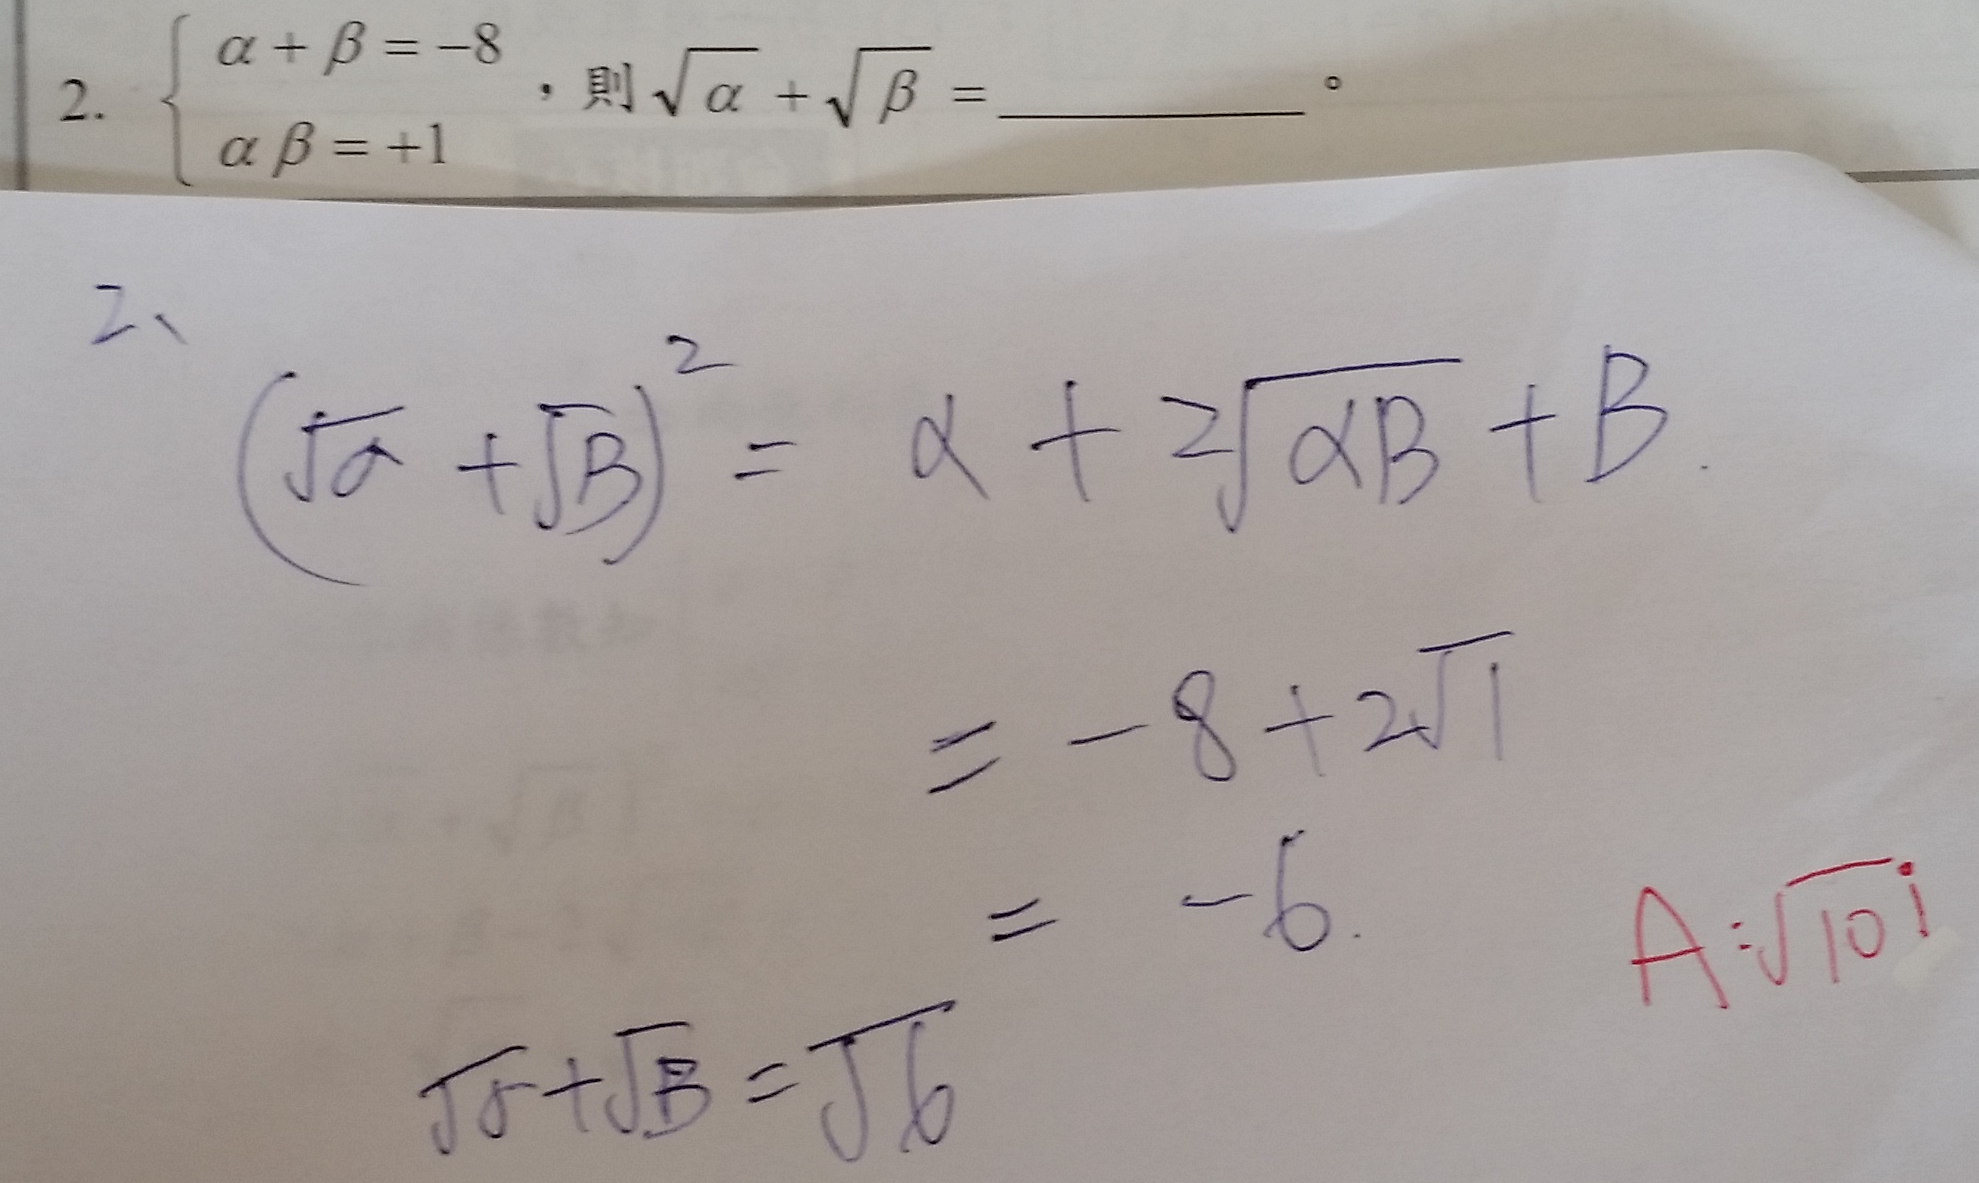 2. { α + β = −8
α β = +1 ，則 √α + √β = ________。
2、
(√α + √B)² = α + 2√αB + B.
= −8 + 2√1
= −6.
A:√10 i
√α + √B = √6